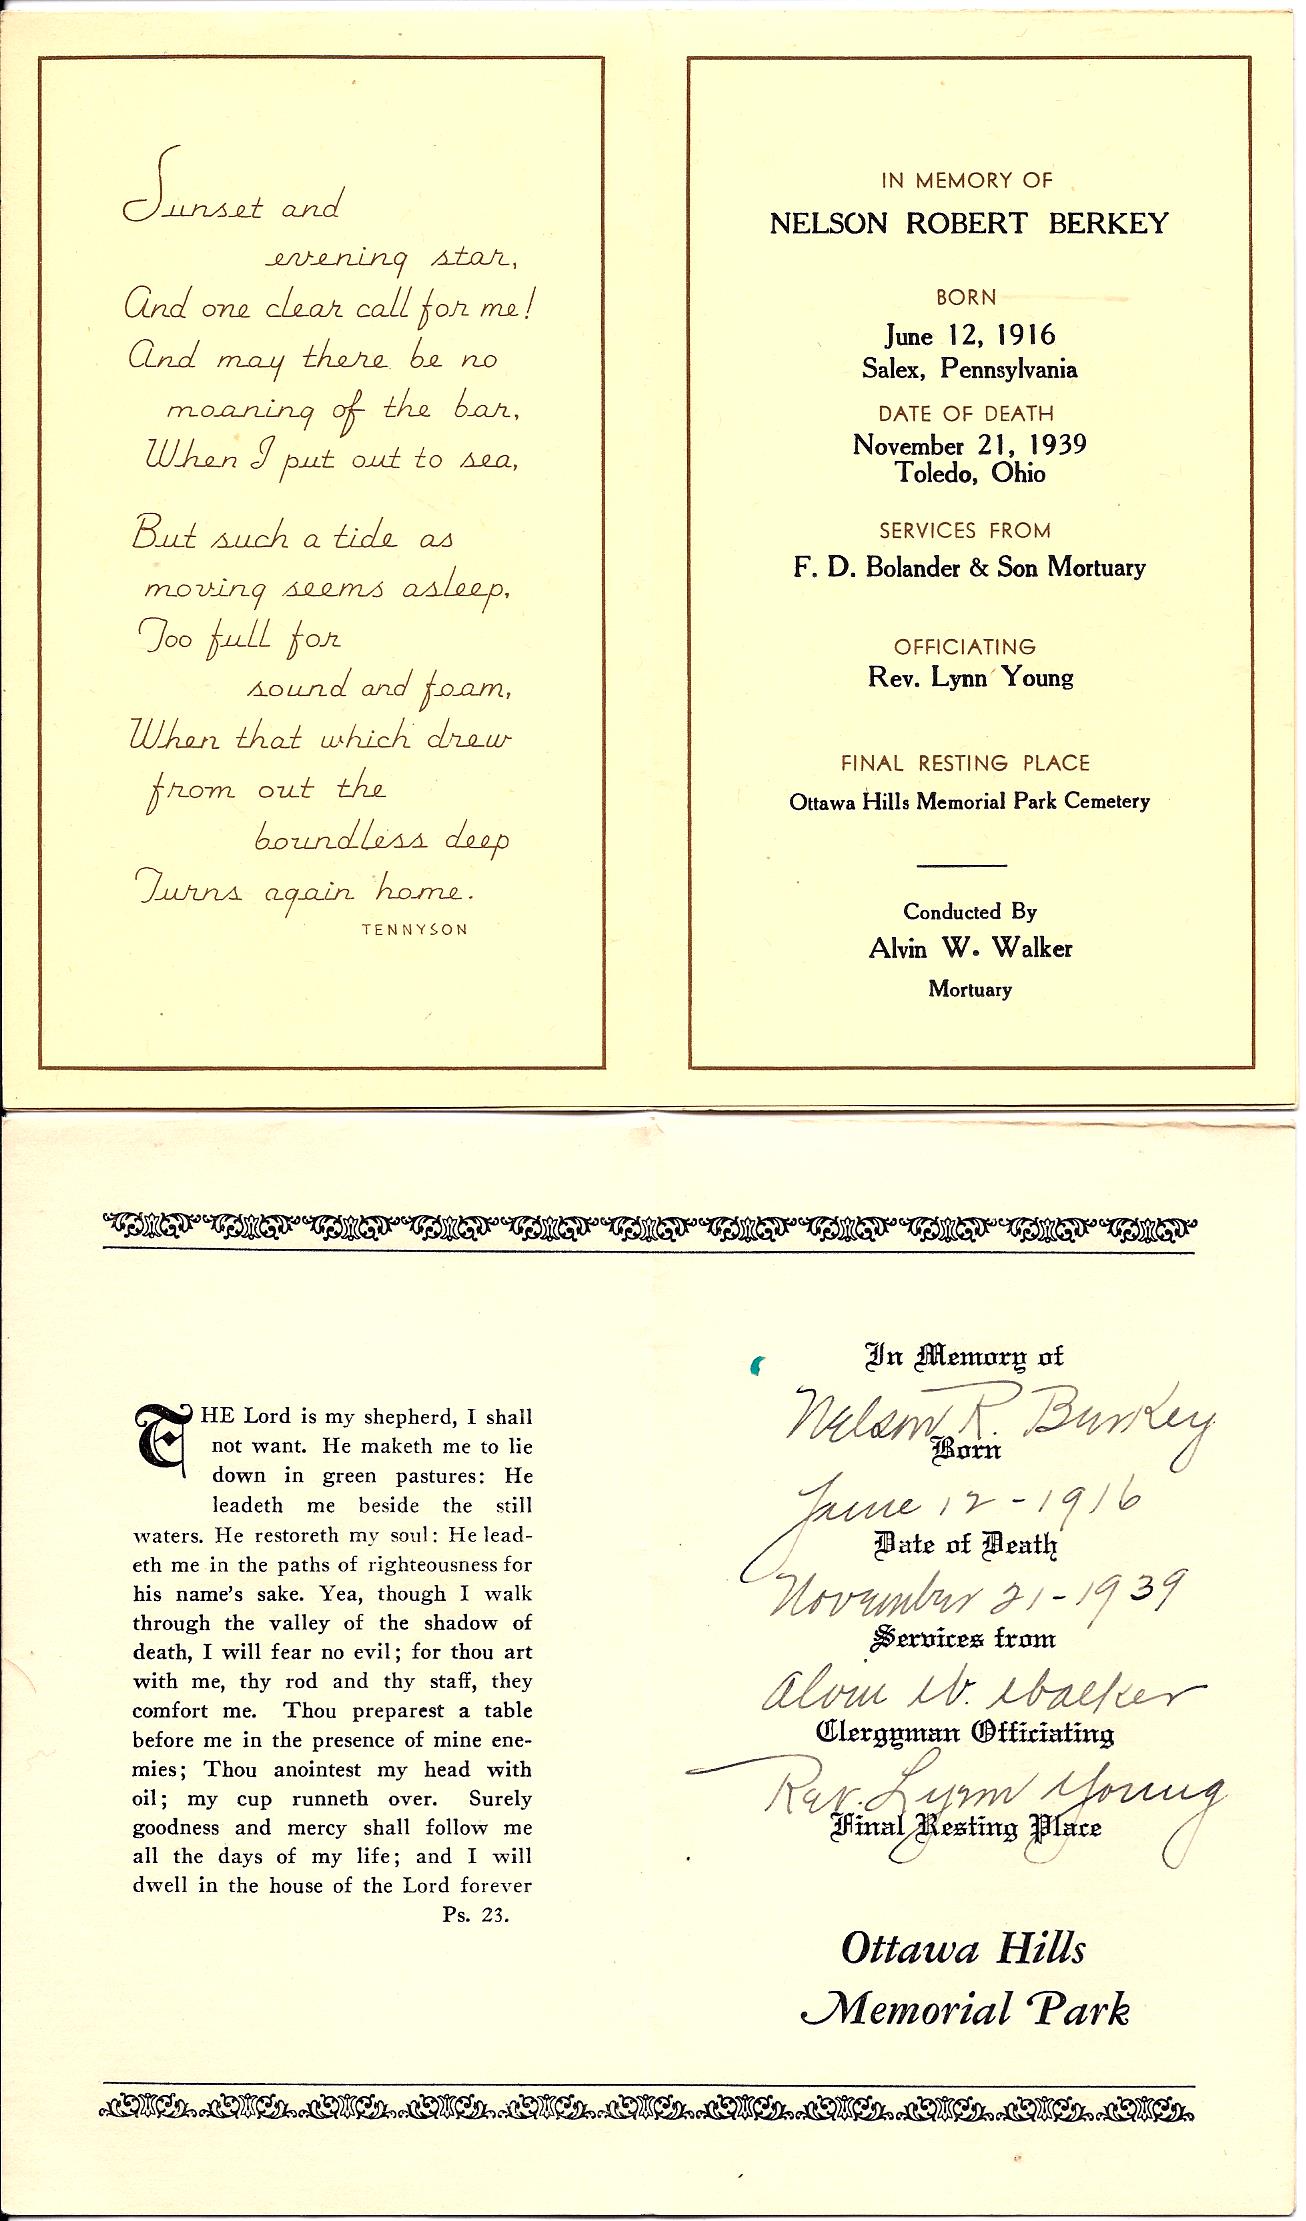 Sunset and
evening star,
And one clear call for me!
And may there be no
moaning of the bar,
When I put out to sea,
But such a tide as
moving seems asleep,
Too full for
sound and foam,
When that which drew
from out the
boundless deep
Turns again home.
TENNYSON
IN MEMORY OF
NELSON ROBERT BERKEY
BORN
June 12, 1916
Salex, Pennsylvania
DATE OF DEATH
November 21, 1939
Toledo, Ohio
SERVICES FROM
F. D. Bolander & Son Mortuary
OFFICIATING
Rev. Lynn Young
FINAL RESTING PLACE
Ottawa Hills Memorial Park Cemetery
Conducted By
Alvin W. Walker
Mortuary
THE Lord is my shepherd, I shall
not want. He maketh me to lie
down in green pastures: He
leadeth me beside the still
waters. He restoreth my soul: He lead-
eth me in the paths of righteousness for
his name's sake. Yea, though I walk
through the valley of the shadow of
death, I will fear no evil; for thou art
with me, thy rod and thy staff, they
comfort me. Thou preparest a table
before me in the presence of mine ene-
mies; Thou anointest my head with
oil; my cup runneth over. Surely
goodness and mercy shall follow me
all the days of my life; and I will
dwell in the house of the Lord forever
Ps. 23.
In Memory of
Nelson R. Burkey
Born
June 12-1916
Date of Death
November 21-1939
Services from
Alvin W. Walker
Clergyman Officiating
Rev. Lynn Young
Final Resting Place
Ottawa Hills
Memorial Park